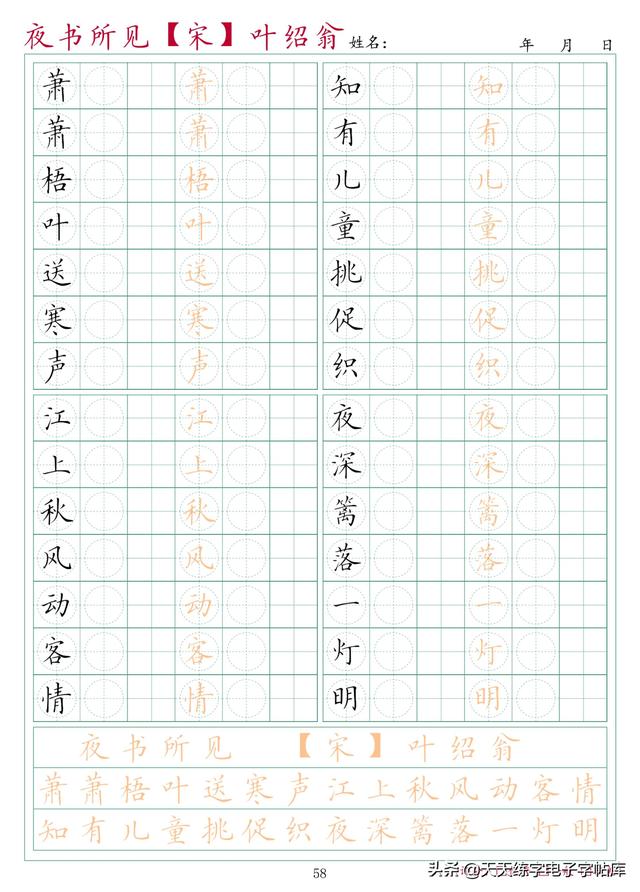 夜书所见【宋】叶绍翁 姓名： 年 月 日
萧 萧 知 知
萧 萧 有 有
梧 梧 儿 儿
叶 叶 童 童
送 送 挑 挑
寒 寒 促 促
声 声 织 织
江 江 夜 夜
上 上 深 深
秋 秋 篱 篱
风 风 落 落
动 动 一 一
客 客 灯 灯
情 情 明 明
夜书所见 【宋】 叶绍翁
萧萧梧叶送寒声江上秋风动客情
知有儿童挑促织夜深篱落一灯明
58
头条@天天练字电子字帖库